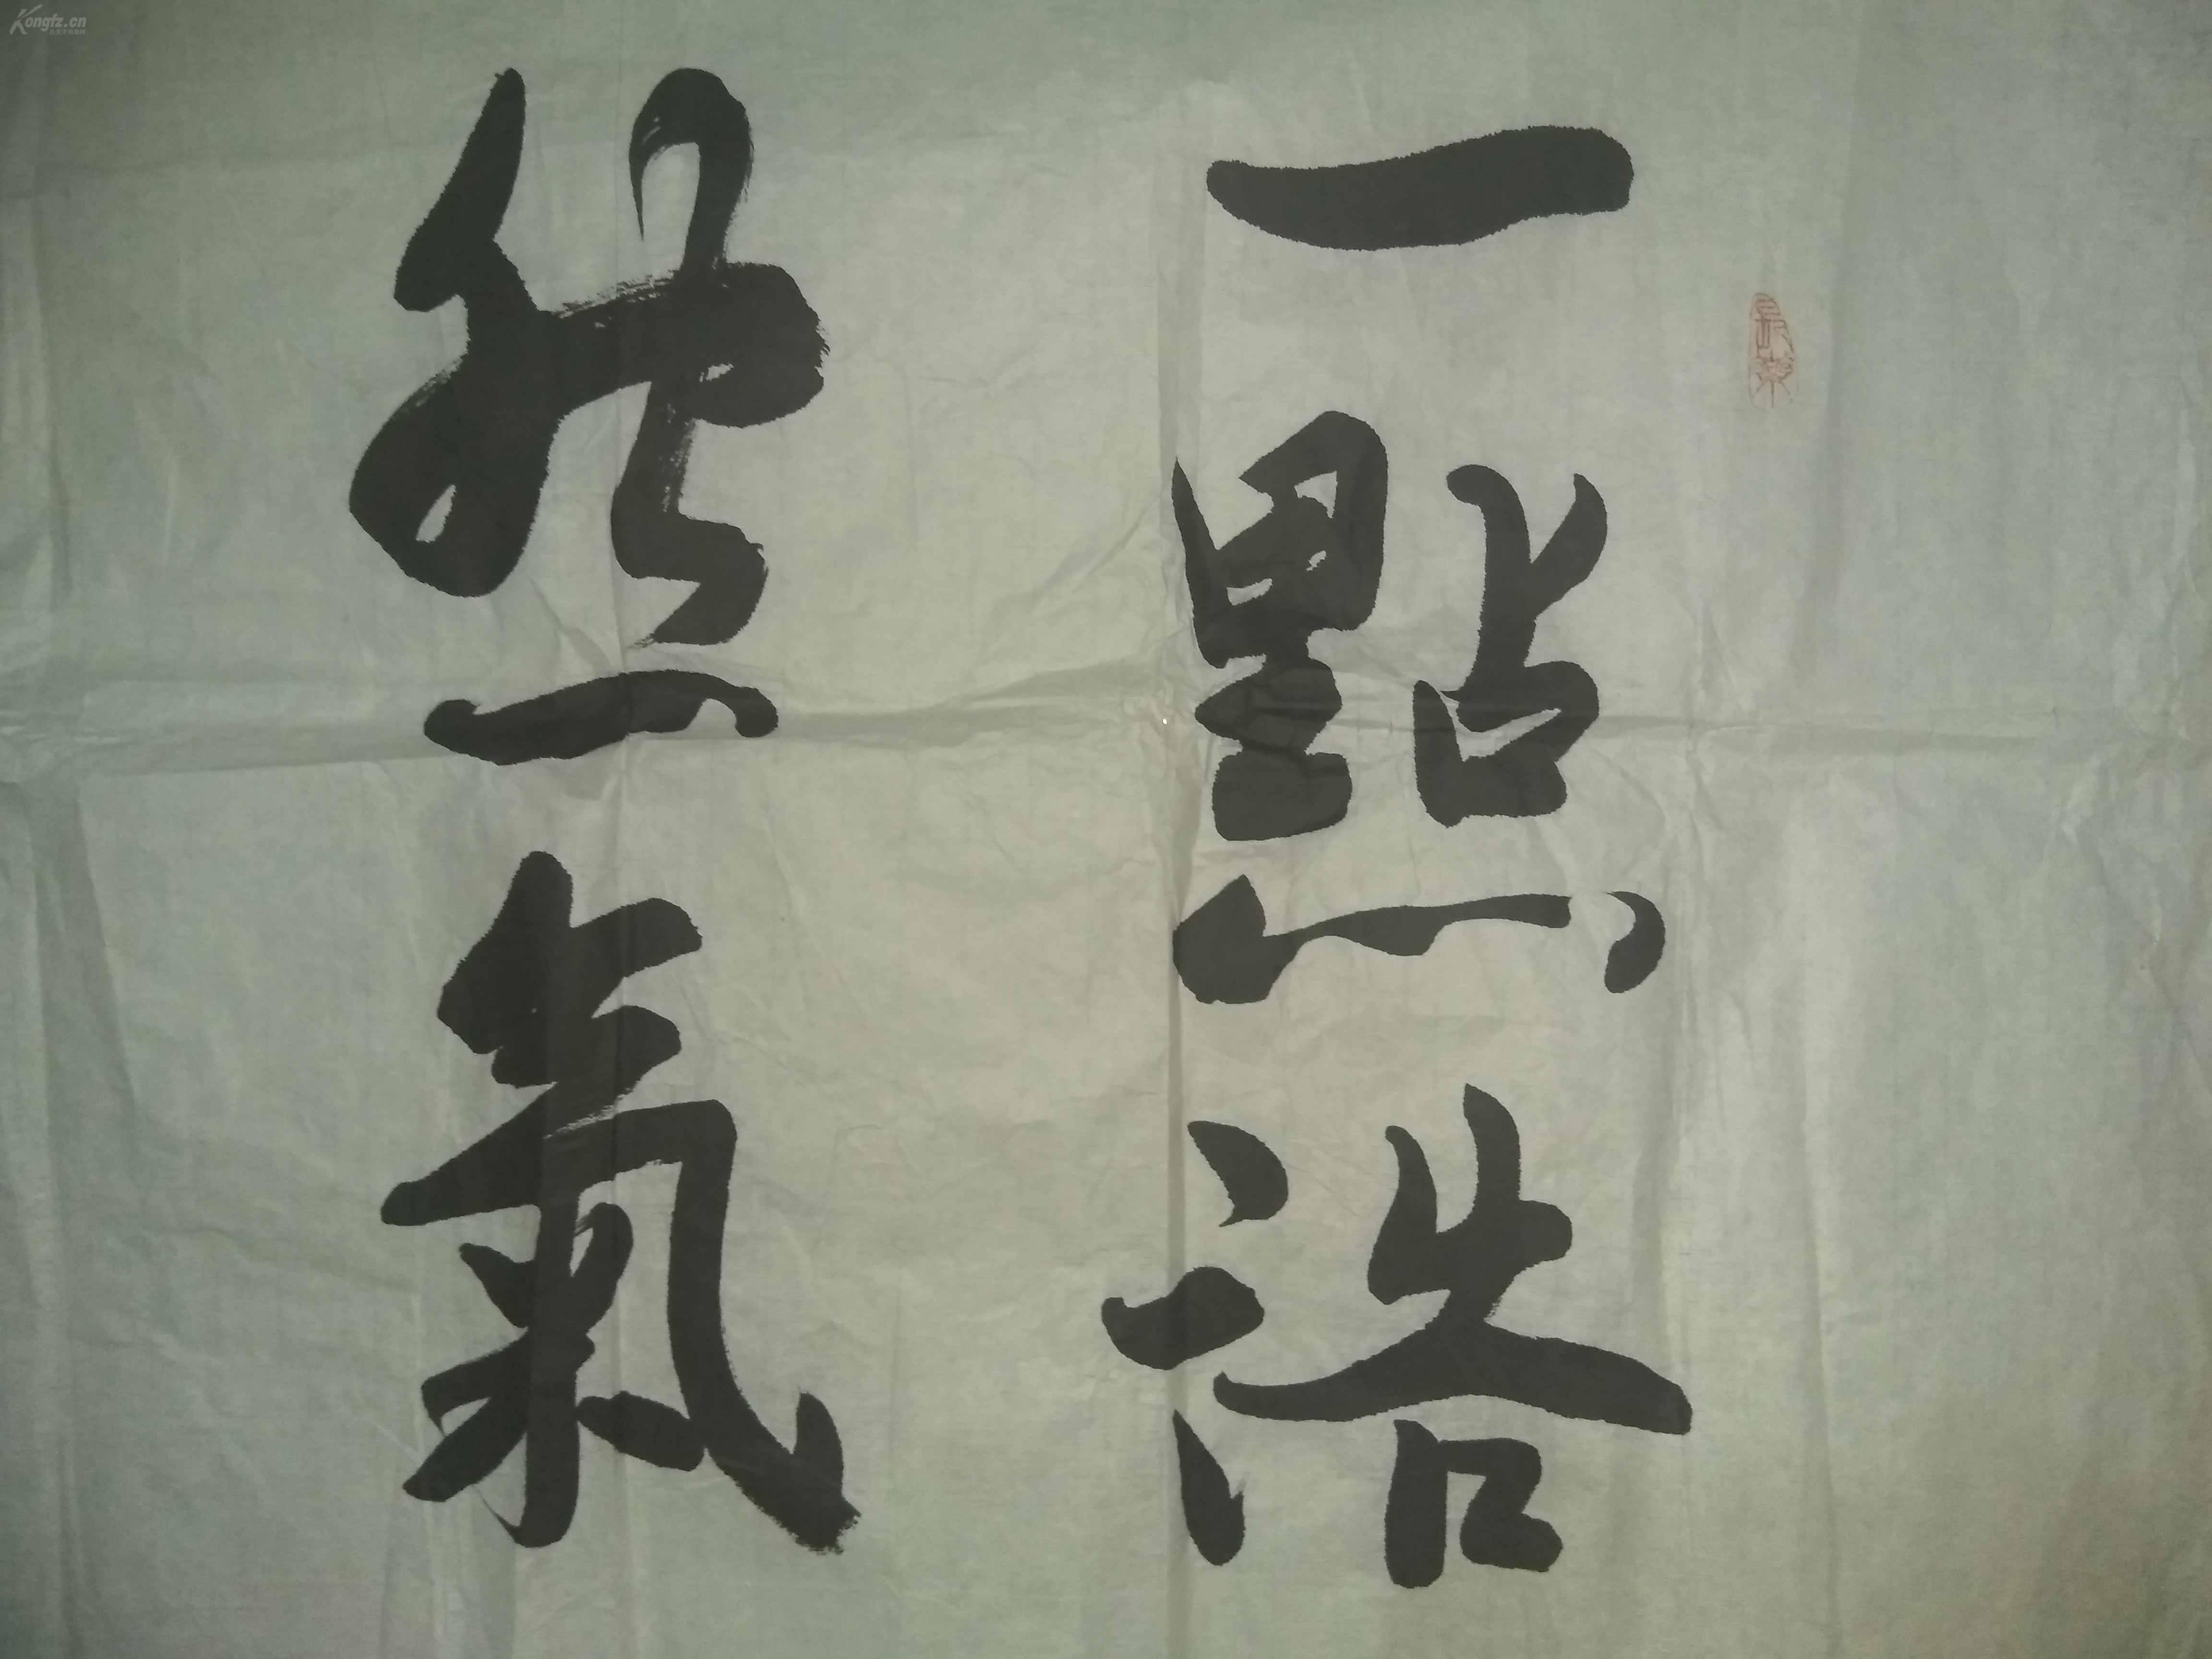 一點浩
然氣
Kongfz.cn